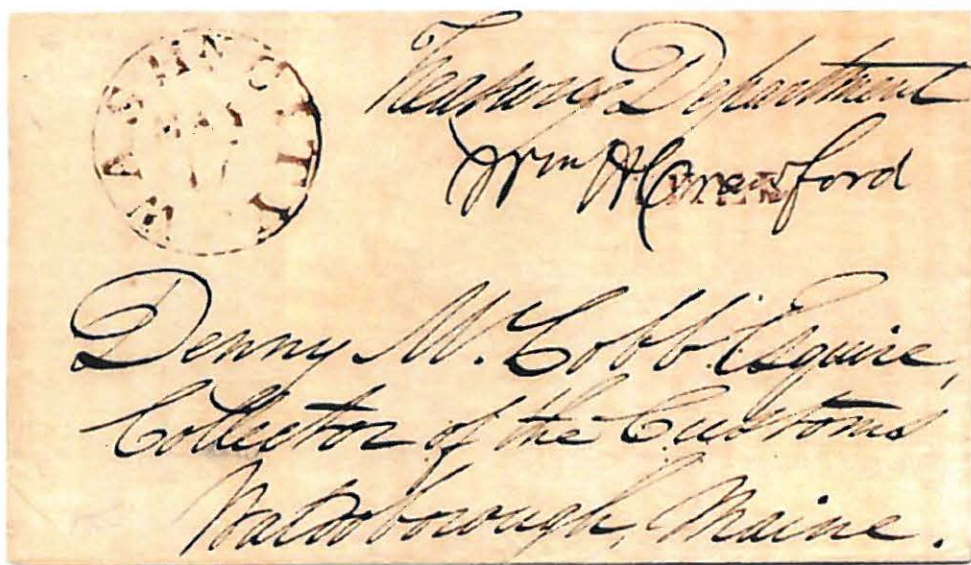 WASHN CITY
MAY
17
Treasury Department
Wm H Crawford
FREE
Denny M. Cobb Esquire,
Collector of the Customs
Waldoborough, Maine.